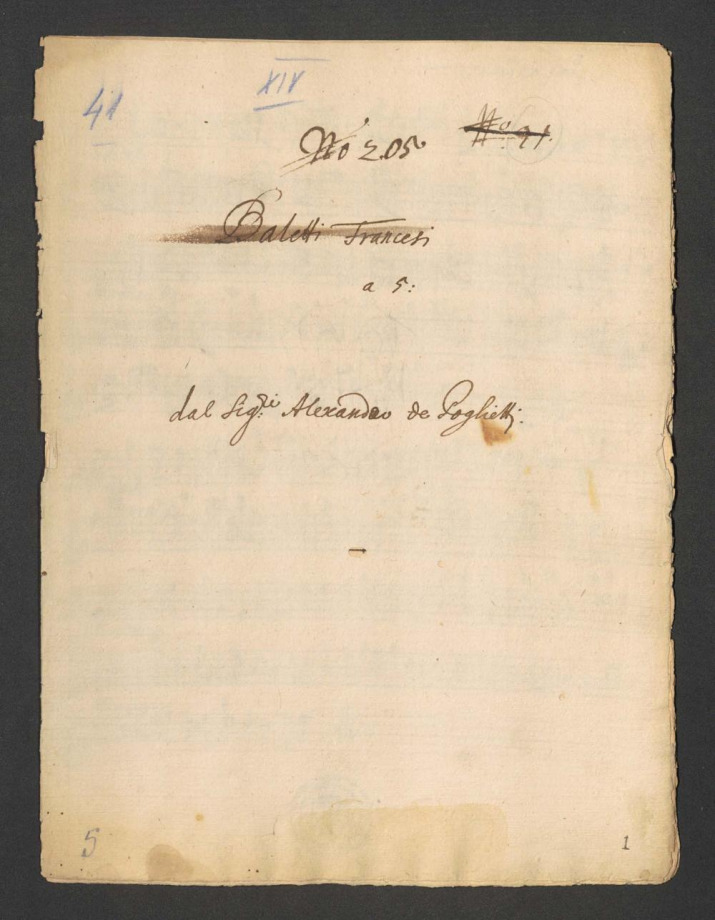 41
XIV
No 205
No: 21.
Baletti Francesi
a 5:
dal Sig:re Alexandro de Poglietti:
5
1